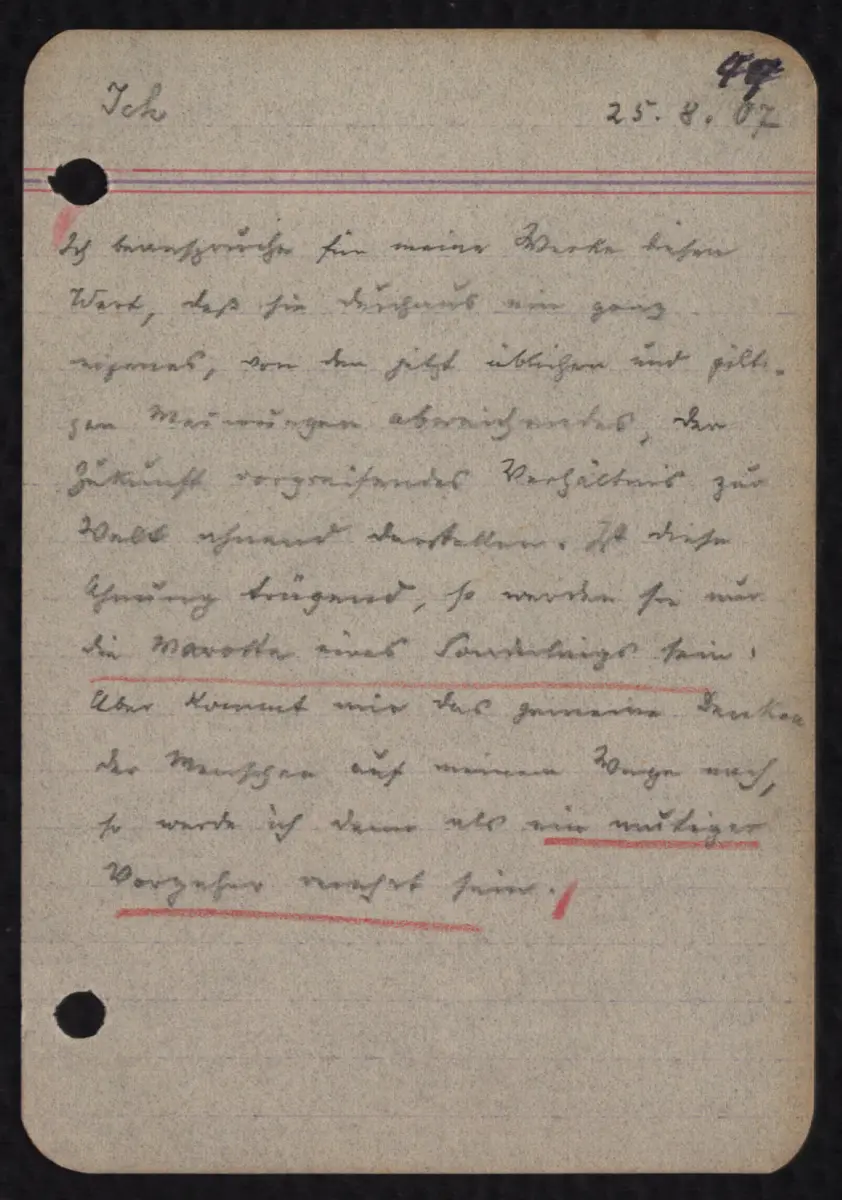 Ich
25. 8. 07
Ich beanspruche für meine Werke diesen
Wert, daß sie durchaus ein ganz
eigenes, von den jetzt üblichen und gilti-
gen Meinungen abweichendes, der
Zukunft vorgreifendes Verhältnis zur
Welt ahnend darstellen. Ist diese
Ahnung trügend, so werden sie nur
die Marotte eines Sonderlings sein.
Aber kommt mir das gemeine Denken
der Menschen auf meinem Wege nach,
so werde ich denn als ein mutiger
Vorgeher verehrt sein.